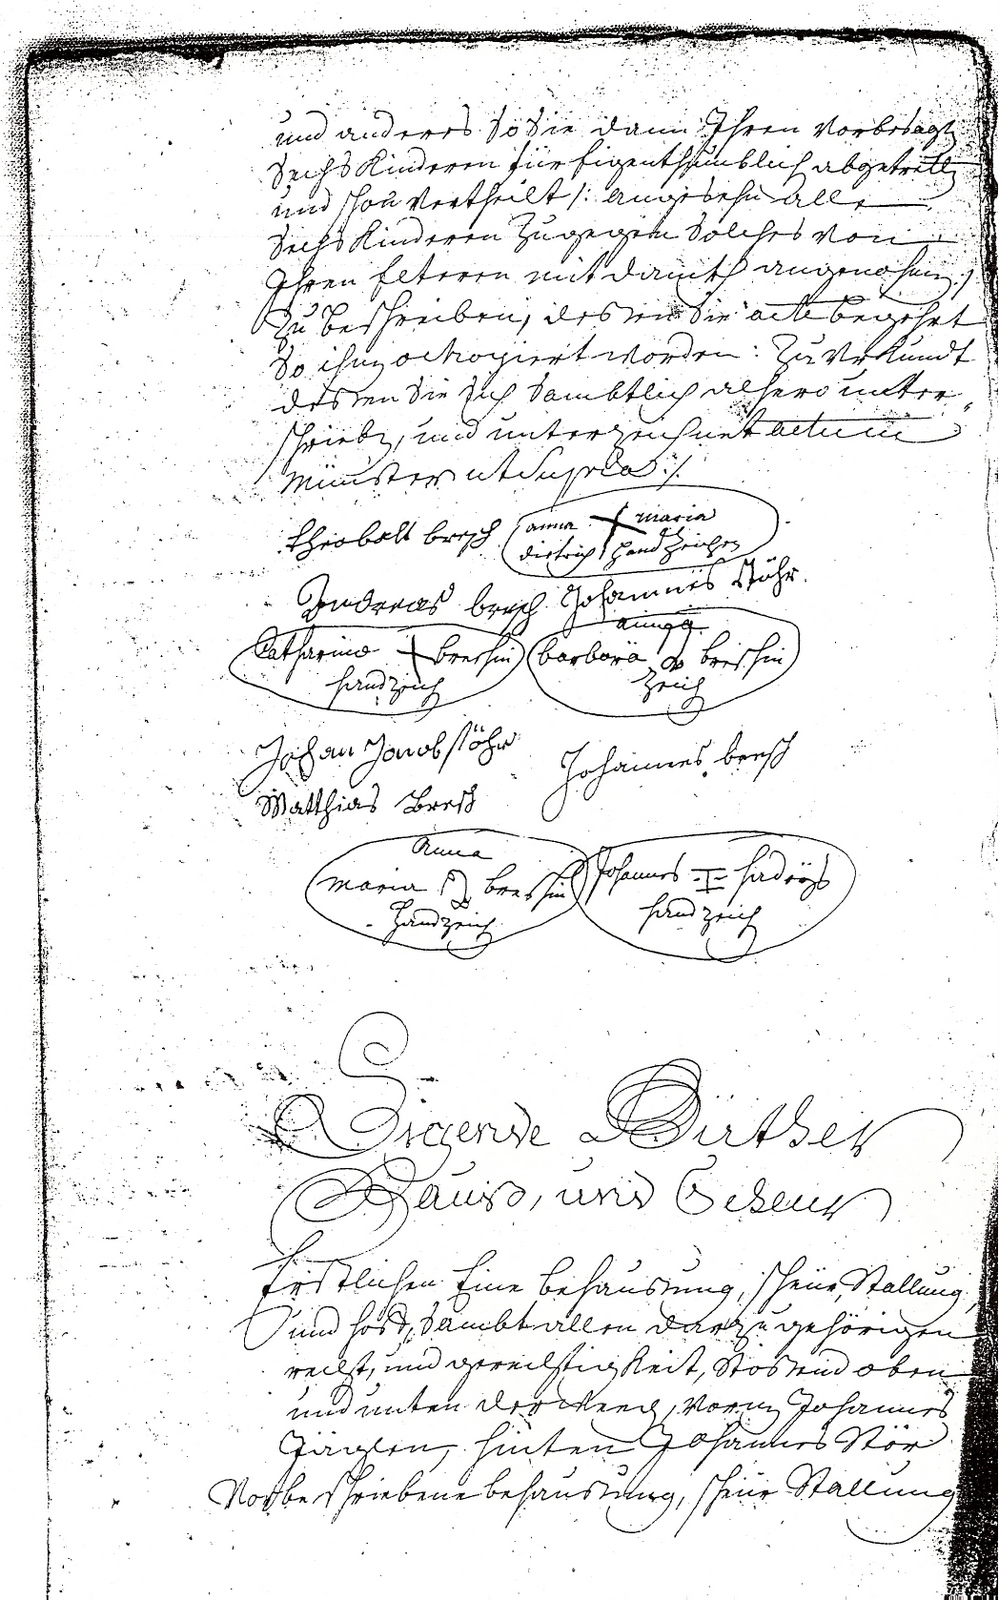 und anderes So Sie dann Ihren Vorbesagt
Sechs Kinderen für Eigenthümblich abgetretten
und schon Vertheilt /: angesehn alle
Sechs Kinderen Zugegen Solches von
Ihren Elteren mit danckh angenohmen :/
Zu beschreiben, dessen Sie acte begehrt
So ihnen octroyiert worden: Zu Urkundt
dessen Sie sich Sambtlich alhero unter
schrieben, und unterzeichnet actum
Münster ut Supra ./.
theobalt bresch anna maria
dietrich handzeichen
Andreas bresch Johannes Stöhr
Catharina breschin
handzeich
anna
barbara breschin
zeich
Johan Jacob stöhr Johannes bresch
Matthias Bresch
Anna
maria breschin
handzeich
Johannes
handzeich
Ligende Güther
Hauß, und Gebeuw
Erstlichen Eine behausung, scheür, Stallung
und hoff, Sambt allen darzu gehörigen
recht, und gerechtigkeit, Stosend oben
und unten der weeg, vornen Johannes
hinten Johannes Stör
Vorbeschriebene behausung, scheür Stallung